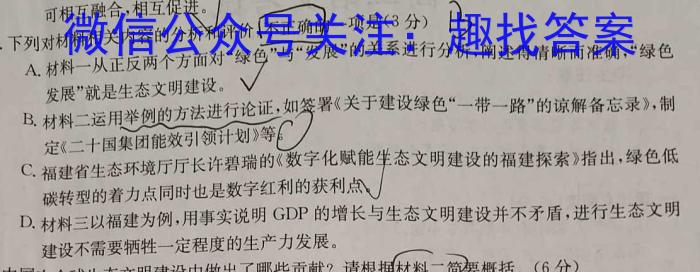 可相互融合,相互促进。
下列对材料相关内容的分析和评价,不正确的一项是(3分)
微信公众号关注:趣找答案
A. 材料一从正反两个方面对“绿色”与“发展”的关系进行分析,阐述得清晰而准确,“绿色
发展”就是生态文明建设。
B. 材料二运用举例的方法进行论证,如签署《关于建设绿色“一带一路”的谅解备忘录》,制
定《二十国集团能效引领计划》等。
C. 福建省生态环境厅厅长许碧瑞的《数字化赋能生态文明建设的福建探索》指出,绿色低
碳转型的着力点同时也是数字红利的获利点。
D. 材料三以福建为例,用事实说明 GDP 的增长与生态文明建设并不矛盾,进行生态文明
建设不需要牺牲一定程度的生产力发展。
生态文明建设中做出了哪些贡献?请根据材料二简要概括。(6分)